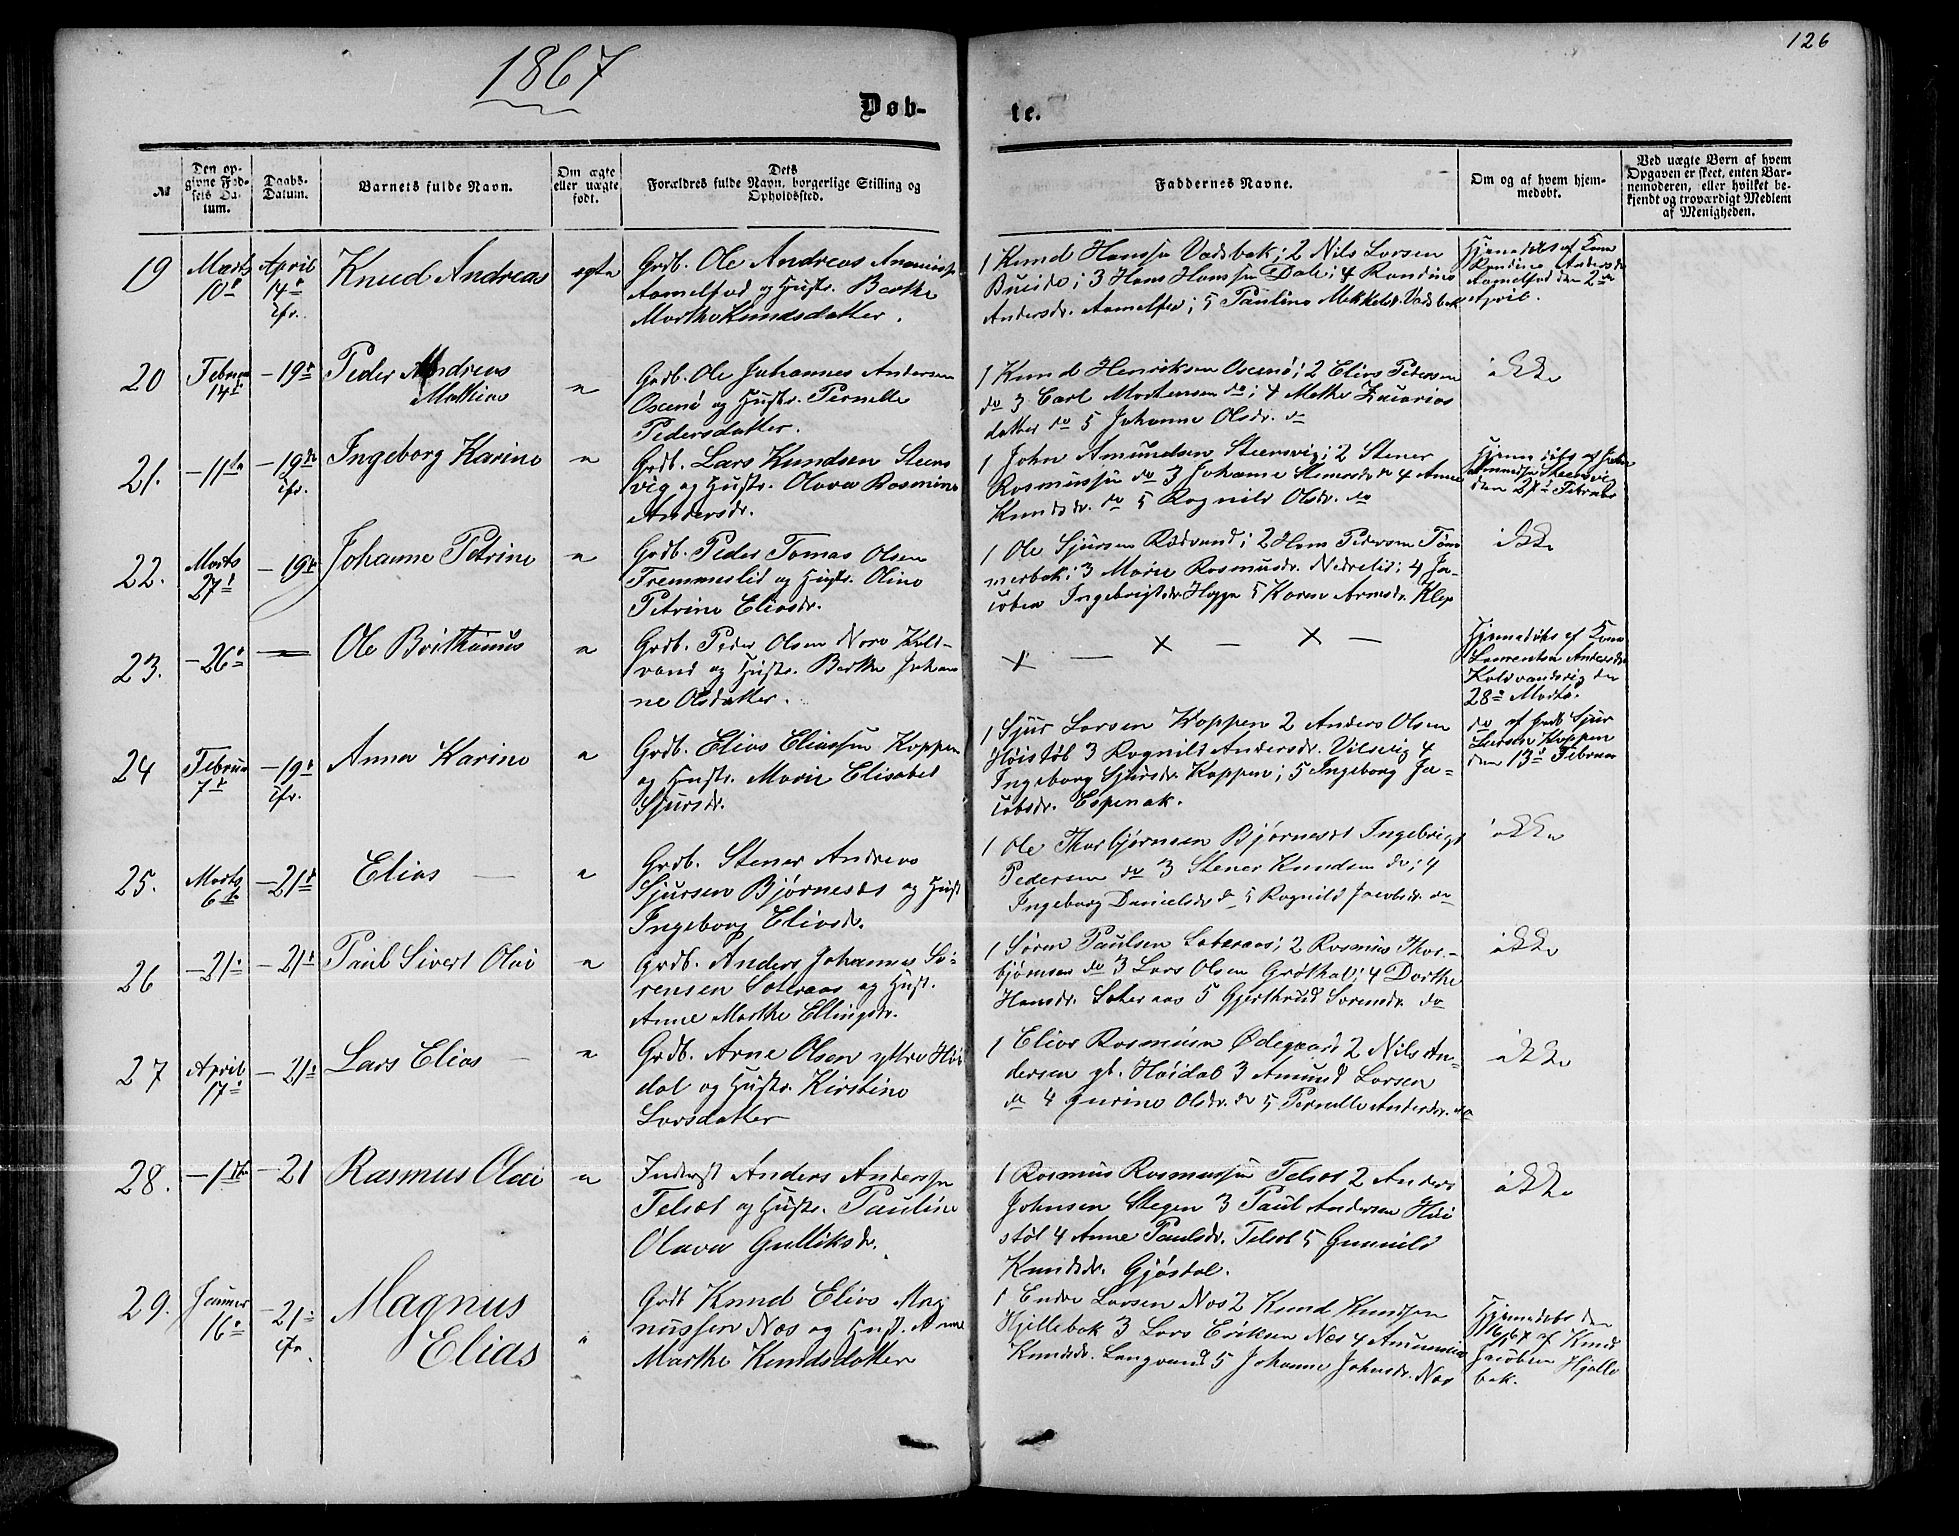 126
1867
Døb-
te.
№
Den op-
givne Fød-
sels Da-
tum.
Daabs-
Datum.
Barnets fulde Navn.
Om ægte
eller uægte
født.
Dets
Forældres fulde Navn, borgerlige Stilling og
Opholdssted.
Faddernes Navne.
Om og af hvem hjem-
medøbt.
Ved uægte Børn af hvem
Opgaven er skeet, enten Bar-
nemoderen, eller hvilket be-
kjendt og troværdigt Medlem
af Menigheden.
19
Marts
10de
April
14de
ifr.
Knud Andreas
ægte
Grdb. Ole Andreas
Aamelfod og Hustr. Berthe
Marthe Knudsdatter.
1 Knud Hansen Vadsbak; 2 Nils Larsen
3 Hans Hansen Dale; 4 Randine
Andersdr. Aamelfod; 5 Pauline Mekkelsdr. Vadsbak
Hjemedøbt af Kone
Randine Andersdr
Aamelfod den 2de
April.
20
Februar
14de
-19de
Peder Andreas
Mathias
"
Grdb. Ole Johannes Andersen
Oxenø og Hustr. Pernelle
Pedersdatter.
1 Knud Henriksen Oxenø; 2 Elias Pedersen
do 3 Carl Mortensen do; 4 Methe Zacarias
datter do 5 Johanne Olsdr. do
ikke
21.
-11te
-19de
ifr.
Ingeborg Karine
"
Grdb. Lars Knudsen Steens
vig og Hustr. Olava Rasmine
Andersdr.
1 John Amundsen Steensvig; 2 Stener
Rasmussen do 3 Johanne Stenersdr do 4 Anne
Knudsdr. do 5 Ragnild Olsdr. do
Hjemedøbt af John
Amundsen Steensvig
den 21de Februar
22.
Marts
27de
-19de
Johanne Petrine
"
Grdb. Peder Tomas Olsen
Fremmerlid og Hustr. Oline
Petrine Eliasdr.
1 Ole Sjursen Rødvand; 2 Hans Pedersen Tøm
merbak; 3 Marie Rasmusdr. Nedrelid; 4 Ja-
cobea Ingebrigtsdr. Hogge 5 Karen Arnesdr. Klep
ikke
23.
-26de
Ole Brithanus
"
Grdb. Peder Olsen Nore Kold-
vand og Hustr. Berthe Johan
ne Olsdatter.
x - x - x -
Hjemedøbt af Kone
Laurentse Andersdr
Koldvandsvig den
28de Marts.
24
Februar
7de
-19de
ifr.
Anna Karine
"
Grdb. Elias Eliassen Koppen
og Hustr. Marie Elisabet
Sjursdr.
1 Sjur Larsen Koppen 2 Anders Olsen
Høistøl 3 Ragnild Andersdr. Vilsvig 4
Ingeborg Sjursdr. Koppen; 5 Ingeborg Ja-
cobsdr. Espenak.
do af Grdb Sjur
Larsen Koppen
den 13de Februar
25.
Marts
6te
-21de
Elias
"
Grdb. Stener Andreas
Sjursen Bjørnesæt og Hust
Ingeborg Eliasdr.
1 Ole Thorbjørnsen Bjørnesæt Ingebrigt
Pedersen do 3 Stener Knudsen do; 4
Ingeborg Danielsdr do 5 Ragnild Jacobsdr. do
ikke
26
-21de
-21de
Paul Sivert Olai
"
Grdb. Anders Johannes Sø-
rensen Soteraas og Hust.
Anne Marthe Ellingsdr.
1 Søren Paulsen Soteraas; 2 Rasmus Thor-
bjørnsen do 3 Lars Olsen Grøthal; 4 Dorthe
Hansdr. Soteraas 5 Gjertrud Sørensdr. do
ikke
27
April
17de
-21de
Lars Elias
"
Grdb. Arne Olsen yttre Høi
dal og Hustr. Kirstine
Larsdatter
1 Elias Rasmusen Ødegaard 2 Nils An-
dersen yt. Høidal 3 Amund Larsen
do 4 Gurine Olsdr. do 5 Pernelle Andersdr. do
ikke
28.
-1ste
-21
Rasmus Olai
"
Inderst Anders Anderssen
Telset og Hustr. Pauline
Olava Gulliksdr.
1 Rasmus Rasmussen Telset 2 Anders
Johnsen Stegen 3 Paul Andersen Høi
støl 4 Anne Paulsdr. Telset 5 Gunnild
Knudsdr. Gjøstøl.
ikke
29.
Januar
16de
-21de
ifr.
Magnus
Elias
"
Grdb Knud Elias Mag
nussen Nas og Hust. Anne
Marthe Knudsdatter
1 Endre Larsen Nas 2 Knud Knudsen
Hjellebak 3 Lars Eriksen Næs 4
Knudsdr. Langvand 5 Johanne Johnsdr. Nas
Hjemedøbt den
af Knud
Jacobsen Hjelle
bak.